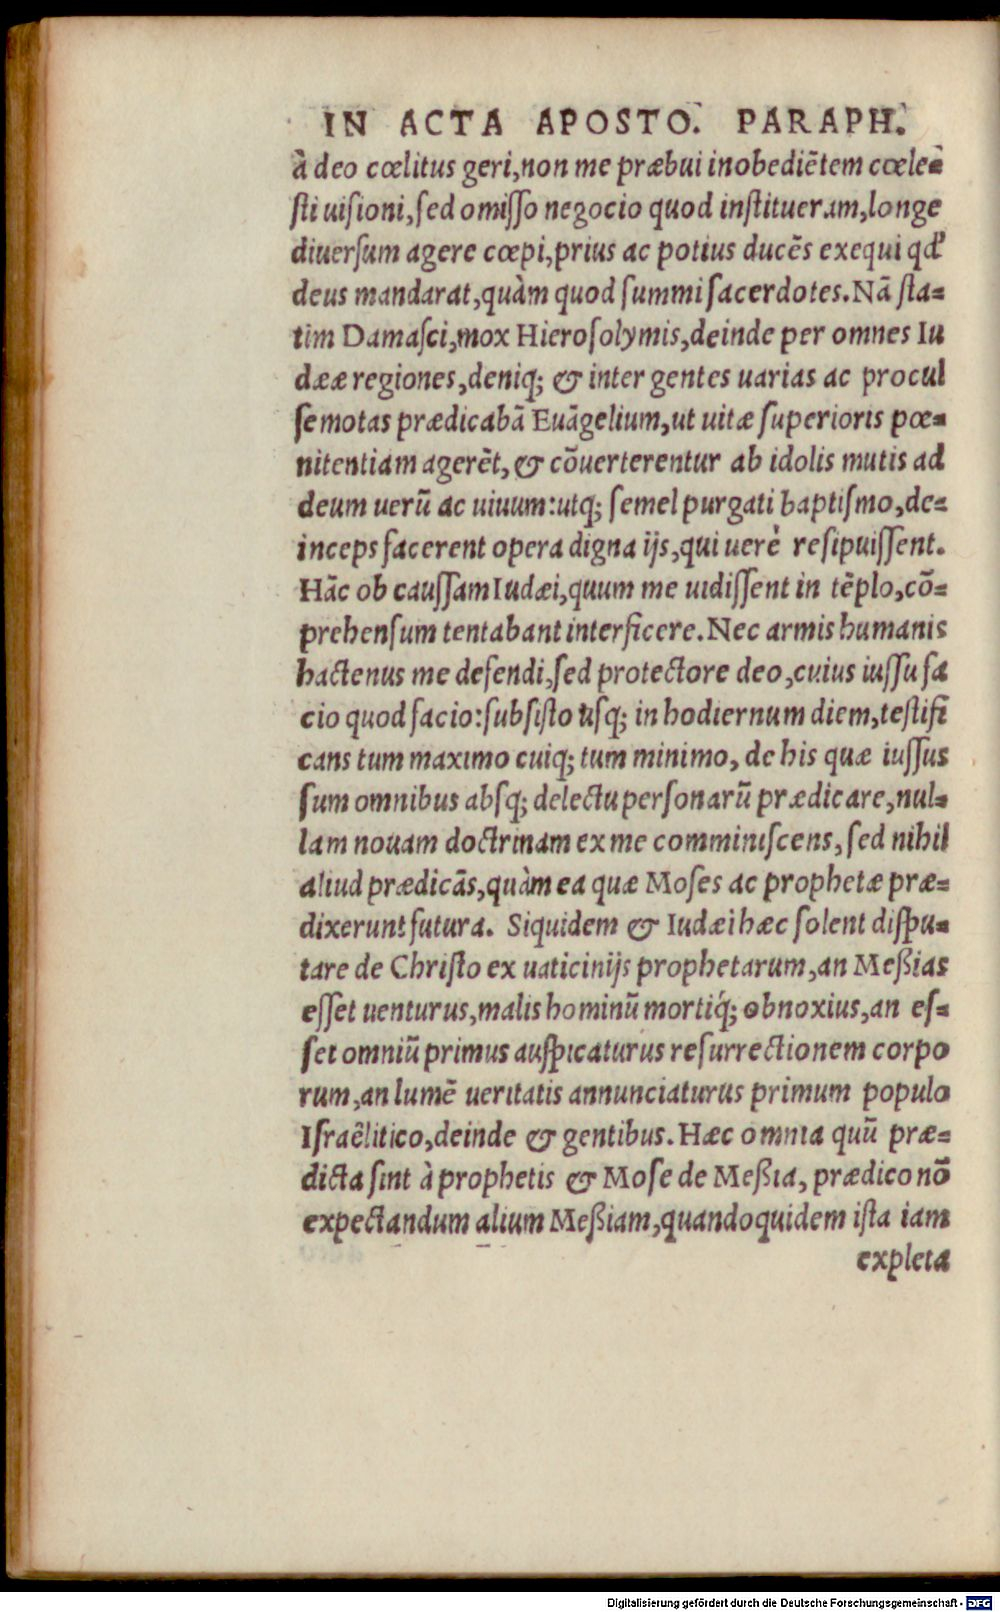 IN ACTA APOSTO. PARAPH.
à deo cœlitus geri, non me præbui inobediẽtem cœle-
ſti uiſioni, ſed omiſſo negocio quod inſtitueram, longe
diuerſum agere cœpi, prius ac potius ducẽs exequi qđ
deus mandarat, quàm quod ſummi ſacerdotes. Nã ſta-
tim Damaſci, mox Hieroſolymis, deinde per omnes Iu
dææ regiones, deniq; & inter gentes uarias ac procul
ſemotas prædicabã Euãgelium, ut uitæ ſuperioris pœ-
nitentiam agerẽt, & cõuerterentur ab idolis mutis ad
deum uerũ ac uiuum: utq; ſemel purgati baptiſmo, de-
inceps facerent opera digna ijs, qui uerè reſipuiſſent.
Hãc ob cauſſam Iudæi, quum me uidiſſent in tẽplo, cõ-
prehenſum tentabant interficere. Nec armis humanis
hactenus me defendi, ſed protectore deo, cuius iuſſu fa
cio quod facio: ſubſiſto uſq; in hodiernum diem, teſtifi
cans tum maximo cuiq; tum minimo, de his quæ iuſſus
ſum omnibus abſq; delectu perſonarũ prædicare, nul-
lam nouam doctrinam ex me comminiſcens, ſed nihil
aliud prædicãs, quàm ea quæ Moſes ac prophetæ præ-
dixerunt futura. Siquidem & Iudæi hæc ſolent diſpu-
tare de Chriſto ex uaticinijs prophetarum, an Meßias
eſſet uenturus, malis hominũ mortiq́; obnoxius, an eſ-
ſet omniũ primus auſpicaturus reſurrectionem corpo
rum, an lumẽ ueritatis annunciaturus primum populo
Iſraëlitico, deinde & gentibus. Hæc omnia quũ præ-
dicta ſint à prophetis & Moſe de Meßia, prædico nõ
expectandum alium Meßiam, quandoquidem iſta iam
expleta
Digitalisierung gefördert durch die Deutsche Forschungsgemeinschaft - DFG